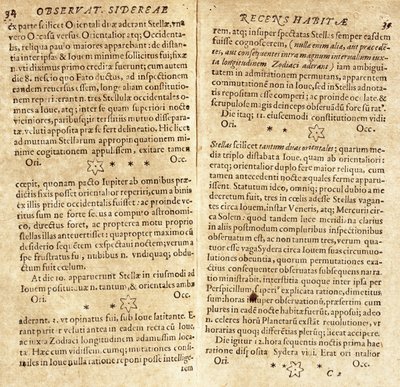 OBSERVAT. SIDEREAE
ex parte scilicet Orientali duæ aderant Stellæ, vna
vero Occasū versus. Orientalior atq; Occidenta-
lis, reliqua pauľo maiores apparebant: de distan-
tia inter ipsas & Iouem minime sollicitus fui, fixæ
n. vti diximus primo creditæ fuerunt; cum autem
die 8. nescio quo Fato ductus, ad inspectionem
eandem reuersus essem, longe aliam constitutio-
nem reperi. erant n. tres Stellulæ occidentales o-
mnes a Ioue, atq; inter se quam superiori nocte
viciniores, paribusq; interstitiis mutuo dissepara-
tæ. veluti apposita præ se fert delineatio. Hic licet
ad mutuam Stellarum appropinquationem mi-
nime cogitationem appulissem, exitare tamen
Ori. Occ.
cœpit, quonam pacto Iupiter ab omnibus præ-
dictis fixis posset orientalior reperiri, cum a binis
ex illis pridie occidentalis fuisset: ac proinde ve-
ritus sum ne forte secus a computo astronomi-
co, directus foret, ac propterea motu proprio
Stellas illas antevertisset: quapropter maximo cū
desiderio sequētem exspectaui noctem; verum a
spe frustratus fui, nubibus n. vndiquaq; obdu-
ctum fuit cœlum.
At die 10. apparuerunt Stellæ in eiusmodi ad
Iouem positu: duæ n. tantum, & orientales ambæ
Ori. Occ.
aderant. 3. vt opinatus fui, sub Ioue latitante. E-
rant pariter veluti antea in eadem recta cū Ioue,
ac iuxta Zodiaci longitudinem adamussim loca-
tæ. Hæc cum vidissem, cumq; mutationes consi-
miles in Ioue nulla ratione reponi posse intellige-
rem
RECENS HABITÆ
rem, atq; insuper spectatas Stellas semper easdem
fuisse cognoscerem, (nullæ enim aliæ, aut præcedē-
tes, aut consequentes intra magnum interuallum iuxta
longitudinem Zodiaci aderant) iam ambigui-
tatem in admirationem permutans, apparentem
commutationem non in Ioue, sed in Stellis adnota-
tis repositam esse comperi; ac proinde oculate, &
scrupulose magis deinceps obseruādū fore sū rat.
Die itaq; 11. eiuscemodi constitutionem vidi
Ori. Occ.
Stellas scilicet tantum duas orientales; quarum me-
dia triplo distabat a Ioue, quam ab orientaliori:
eratq; orientalior duplo fere maior reliqua, cum
tamen antecedenti nocte æquales ferme apparu-
issent. Statutum ideo, omniq; procul dubio a me
decretum fuit, tres in cœlis adesse Stellas vagan-
tes circa Iouem, instar Veneris, atq; Mercurii cir-
ca Solem: quod tandem luce meridiana clarius
in aliis postmodum compluribus inspectionibus
obseruatum est, ac non tantum tres, verum qua-
tuor esse vaga Sydera circa Iouem suas circumuo-
lutiones obeuntia, quorum permutationes exa-
ctius consequenter obseruatas subsequens narra-
tio ministrabit. interstitia quoque inter ipsa per
Perspicillum, superius explicata ratione, dimetitus
sum: horas insuper obseruationū, præsertim cum
plures in eadē nocte habitæ fuerūt, apposui; adeo
n. celeres horū Planetarū exstāt reuolutiones, vt
horarias quoq; differentias plerūq; liceat accipere.
Die igitur 12. hora sequentis noctis prima hac
ratione disposita Sydera vidi. Erat ori ntalior
Ori. Occ.